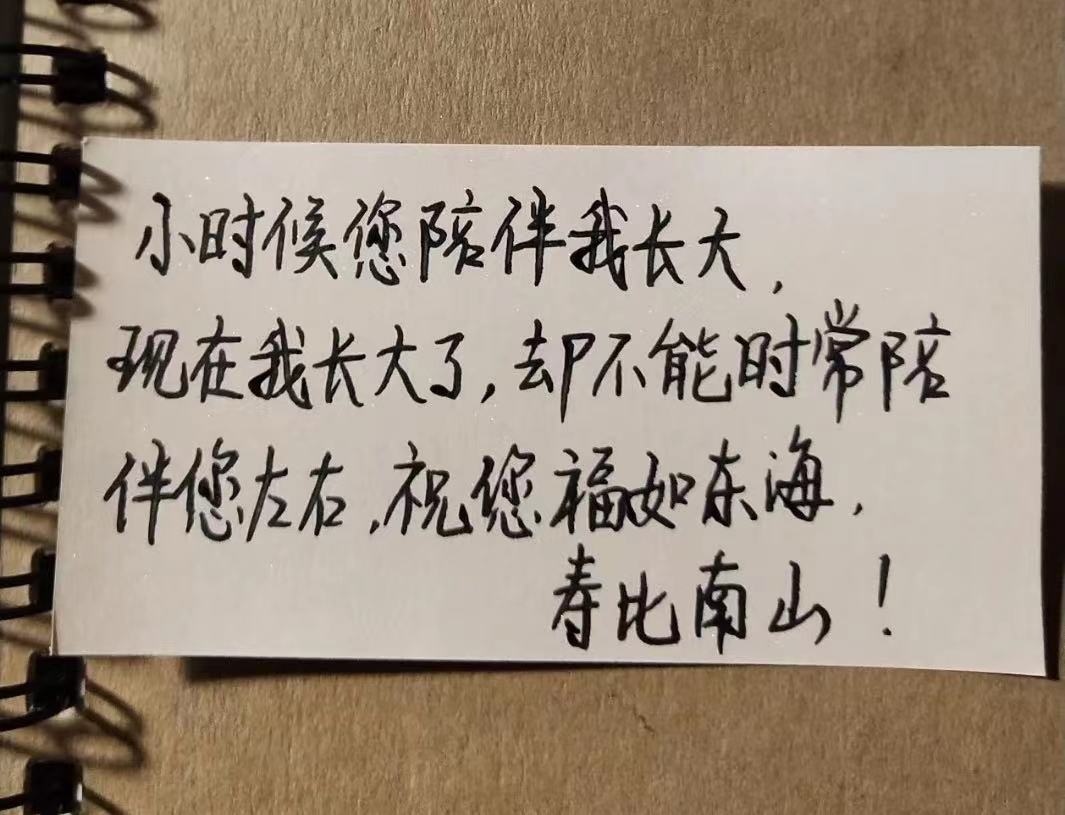 小时候您陪伴我长大,
现在我长大了,却不能时常陪
伴您左右,祝您福如东海,
寿比南山!